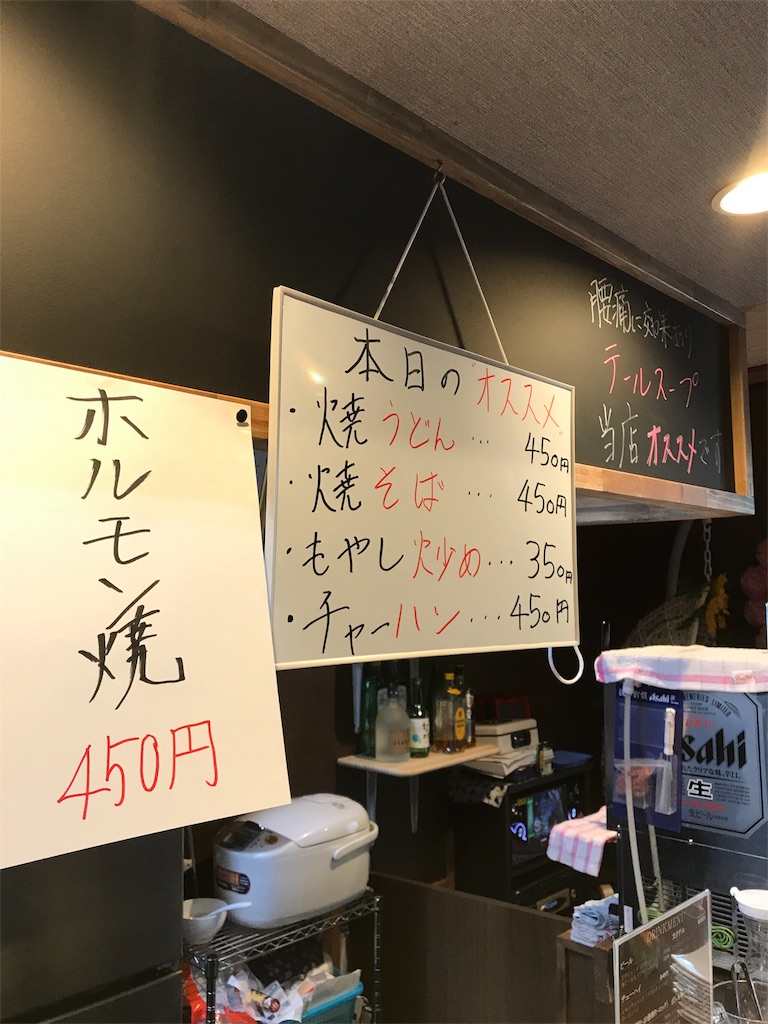 ホルモン焼
450円
本日のオススメ
・焼うどん … 450円
・焼そば … 450円
・もやし炒め … 350円
・チャーハン … 450円
腰痛に効果あり
テールスープ
当店オススメです
Asahi
生
生ビール
DRINK MENU
ビール